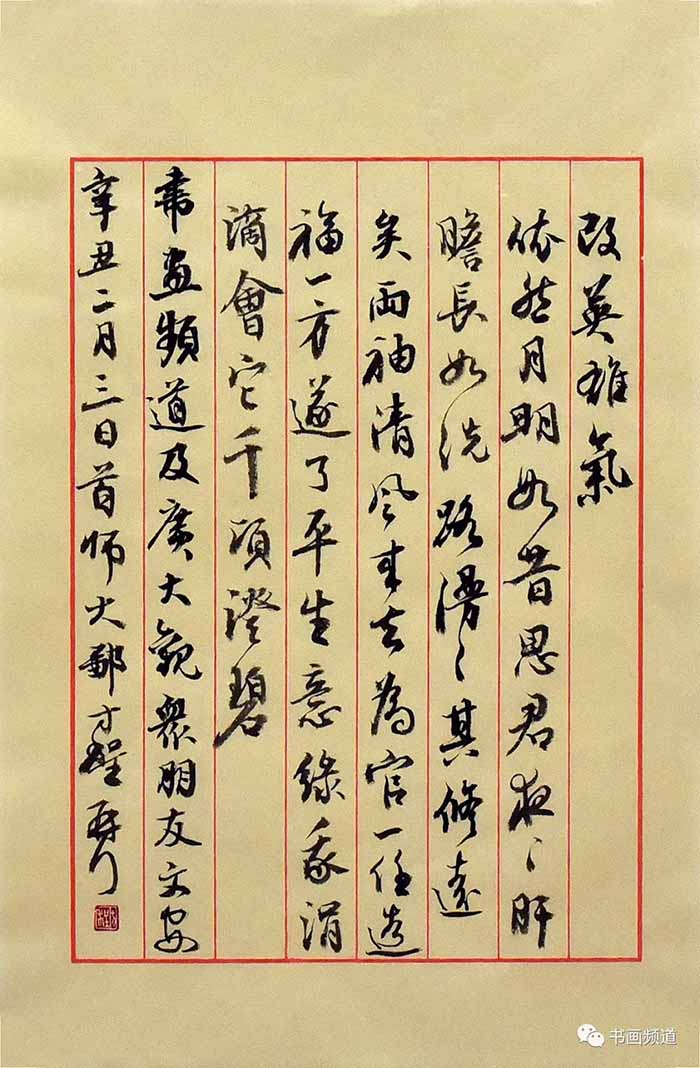 改英雄氣
依然月明如昔思君夜〻肝
膽長如洗路漫〻其修遠
矣兩袖清風來去為官一任造
福一方遂了平生意綠我涓
滴會它千頃澄碧
書畫頻道及廣大觀衆朋友文安
辛丑二月三日首師大鄒方程再行
书画频道